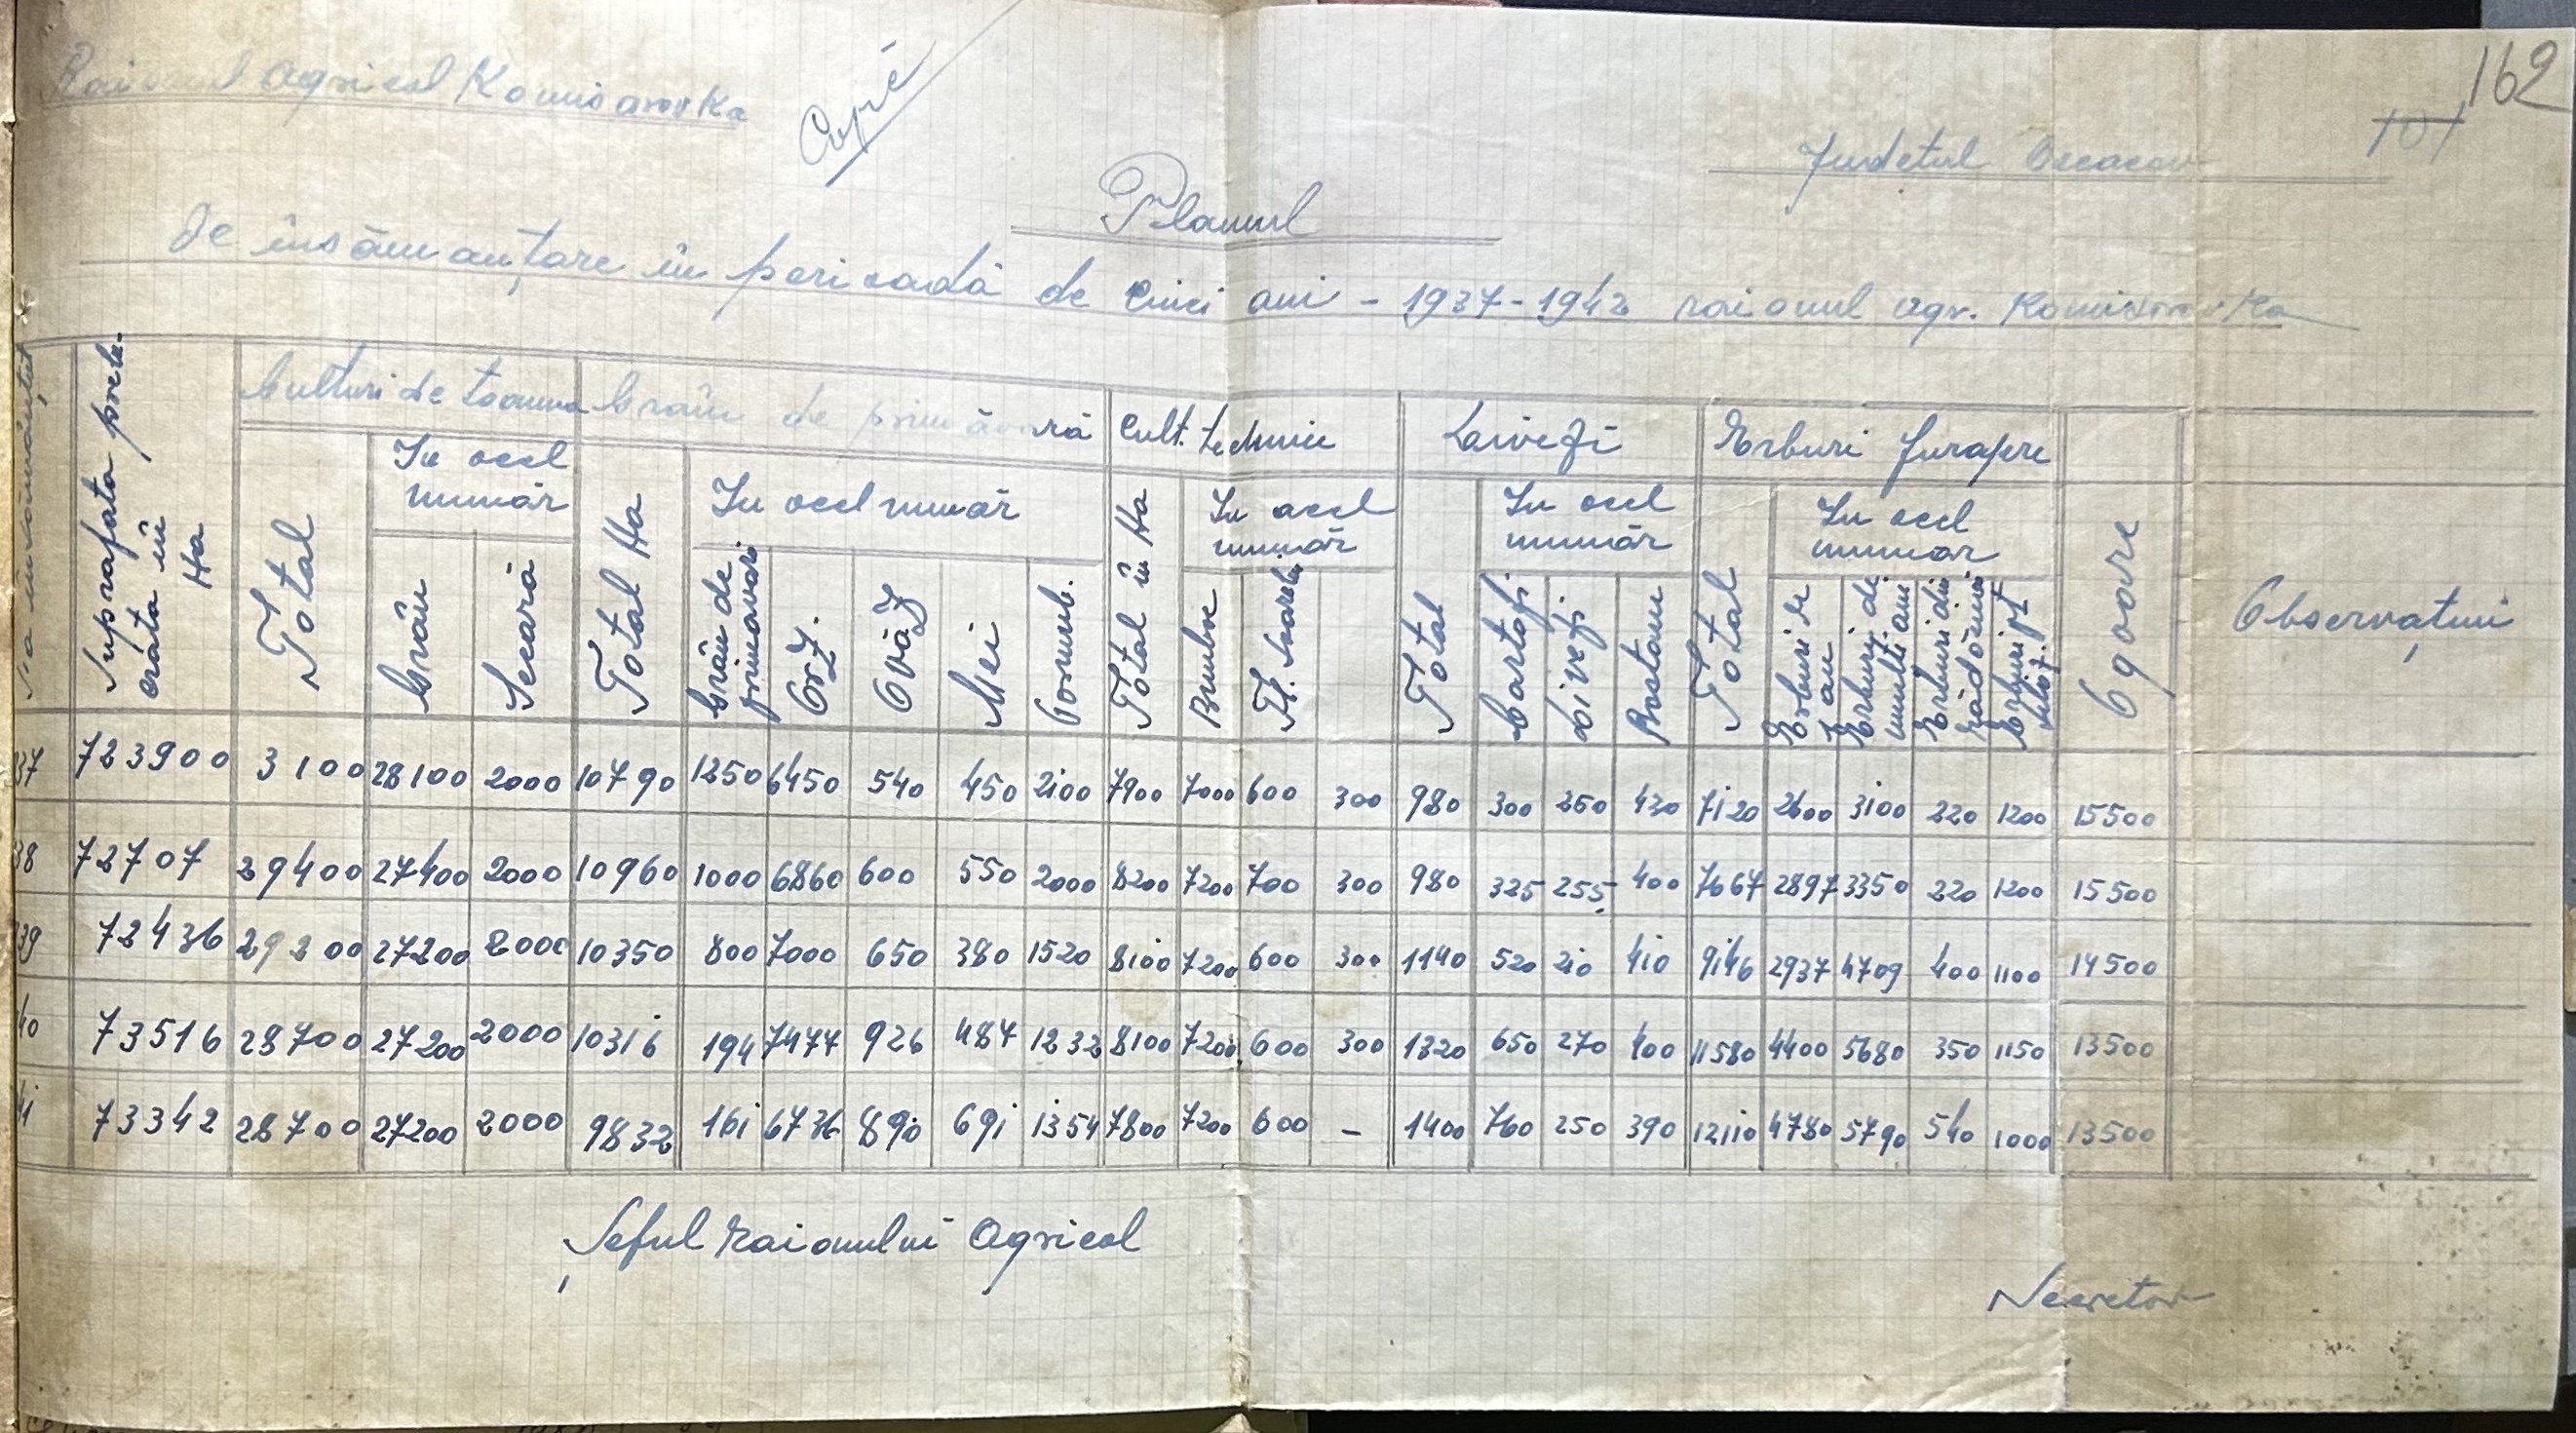 162
101
Raionul Agricol Komisarovka
Copie
Judetul Oceacov
Planul
de însămanțare în perioadă de cinci ani - 1937-1942 raionul agr. Komisarovka
Suprafata prelu-
crata în
Ha
Culturi de toamna
Grâu de primăvară
Cult. technice
Livezi
Erburi furajre
Ogoare
Observațiuni
Total
In acel
număr
Grâu
Secară
Total Ha
In acel număr
Grâu de
primavară
Orz.
Ovăz
Mei
Porumb.
Total în Ha
In acel
număr
Bumbac
Fl. Soarelui
Total
In acel
număr
Cartofi
Livezi.
Bostani
Total
In acel
numar
Erburi de
1 an
Erburi de
multi ani
Erburi din
rădăcini
Erburi pt
siloz.
37 723900 3100 28100 2000 10790 1250 6450 540 450 2100 7900 7000 600 300 980 300 250 430 7120 2600 3100 220 1200 15500
38 72707 29400 27400 2000 10960 1000 6860 600 550 2000 8200 7200 700 300 980 325 255 400 7667 2897 3350 220 1200 15500
39 72436 29200 27200 2000 10350 800 7000 650 380 1520 8100 7200 600 300 1140 520 210 410 9146 2937 4709 400 1100 14500
40 73516 28700 27200 2000 10316 194 7477 926 487 1232 8100 7200 600 300 1320 650 270 400 11580 4400 5680 350 1150 13500
41 73342 28700 27200 2000 9832 161 6736 890 691 1354 7800 7200 600 - 1400 760 250 390 12110 4780 5790 540 1000 13500
Șeful raionului Agricol
Secretar